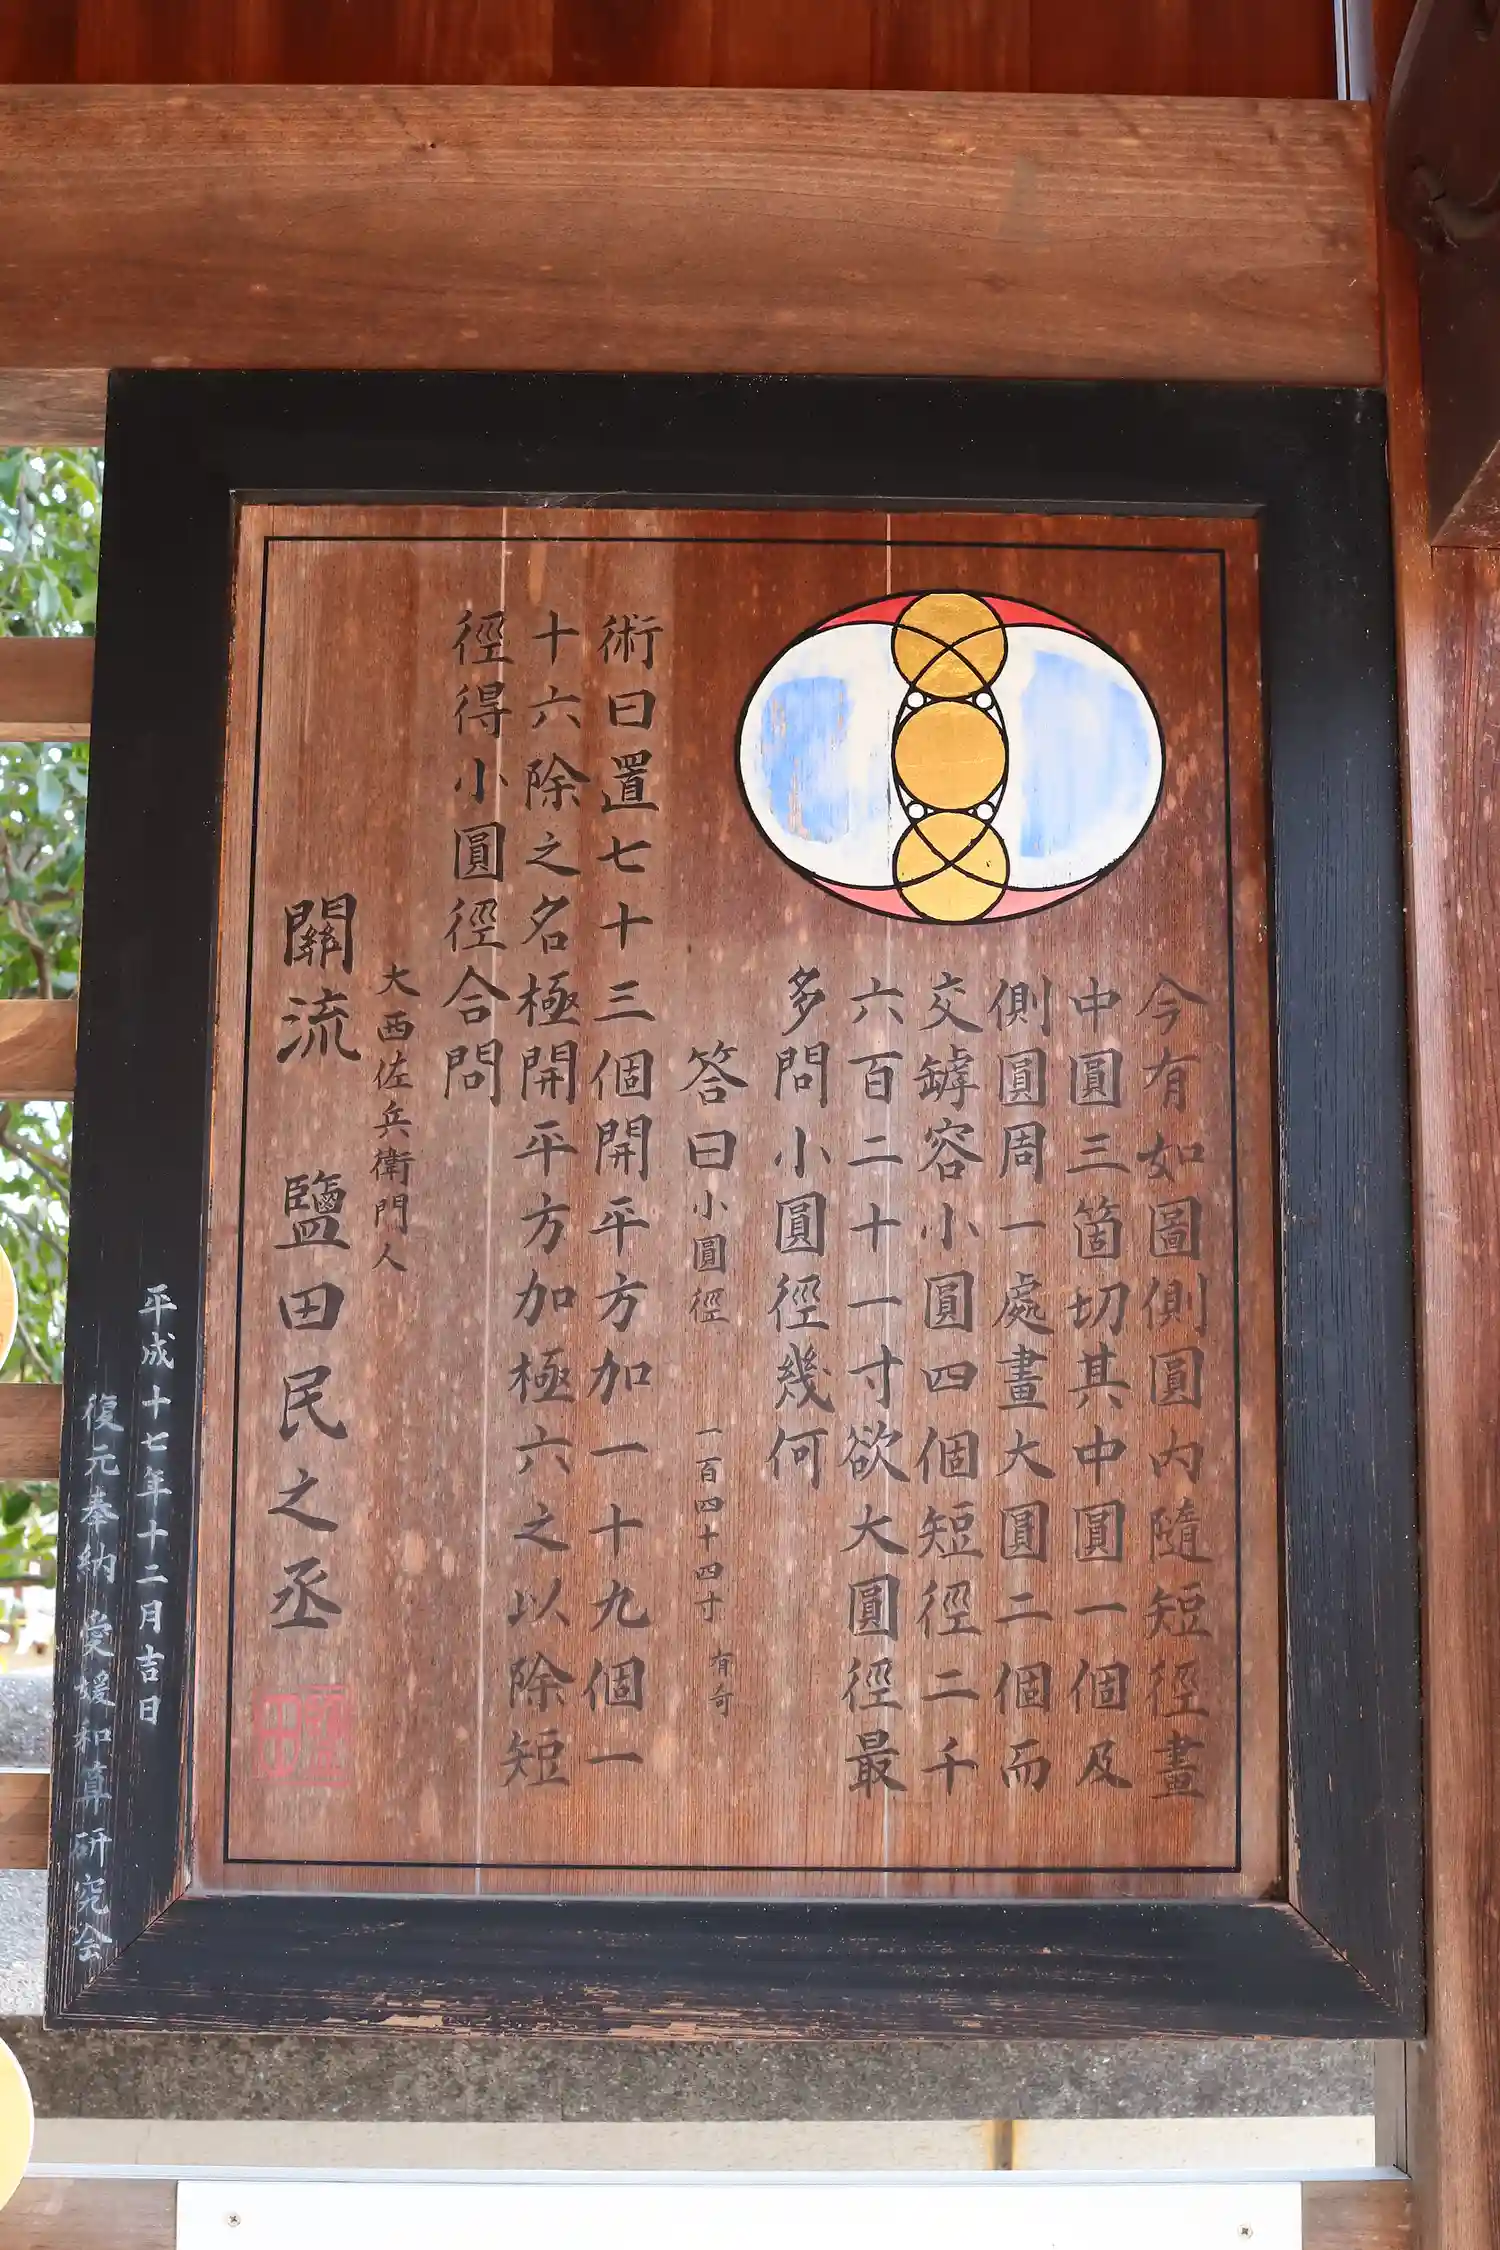 今有如圖側圓内隨短徑畫
中圓三箇切其中圓一個及
側圓周一處畫大圓二個而
交罅容小圓四個短徑二千
六百二十一寸欲大圓徑最
多問小圓徑幾何
答曰小圓徑 一百四十四寸有奇
術曰置七十三個開平方加一十九個一
十六除之名極開平方加極六之以除短
徑得小圓徑合問
大西佐兵衛門人
關流 鹽田民之丞
平成十七年十二月吉日
復元奉納 愛媛和算研究会